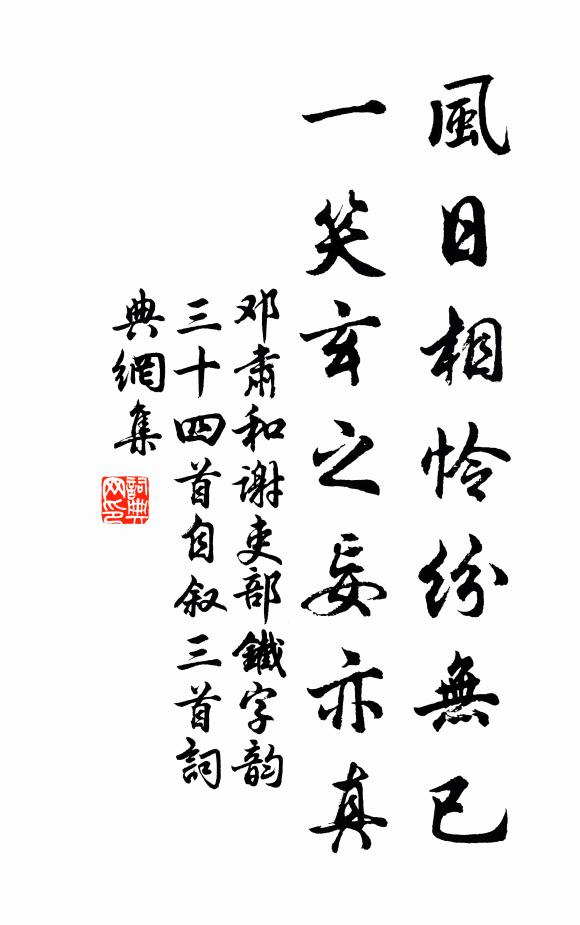 風日相怜紛無已
一笑玄之妄亦真
邓肃和谢吏部鐵字韵
三十四首自叙三首詞
典網集
詞典
网印